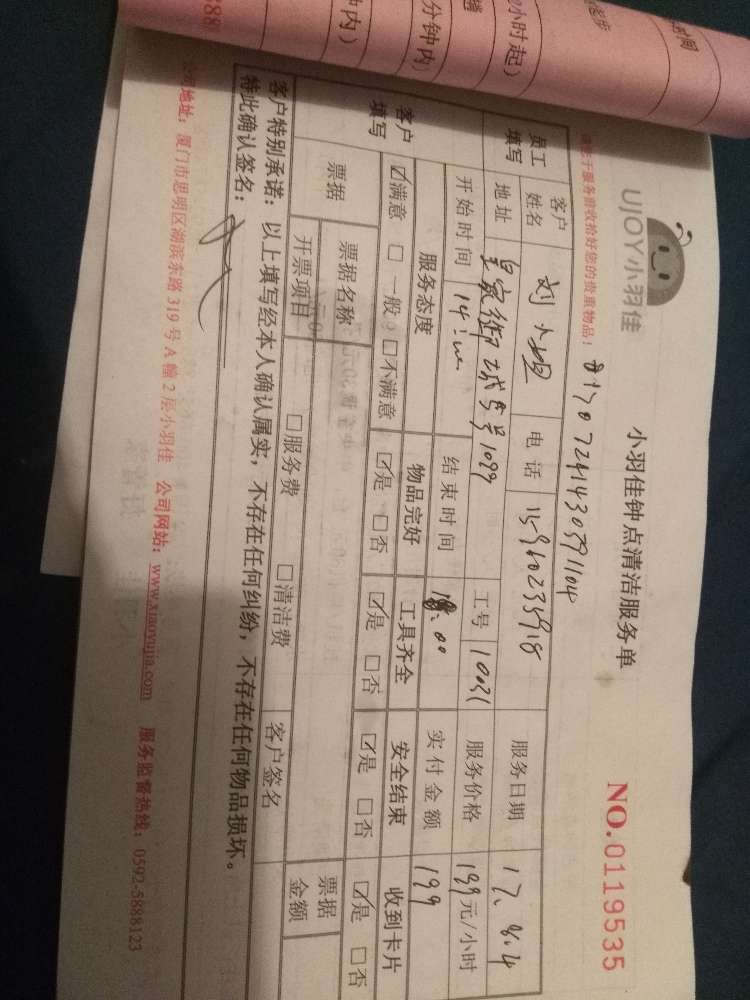 UJOY小羽佳
小羽佳钟点清洁服务单
NO.0119535
于服务前收拾好您的贵重物品!
员工填写
客户姓名
刘小姐
电话
15960235918
服务日期
17.8.4
地址
1099
工号
10031
服务价格
199元/小时
开始时间
14:00
结束时间
实付金额
199
客户填写
服务态度
物品完好
工具齐全
安全结束
收到卡片
☑满意 □一般 □不满意
☑是 □否
☑是 □否
☑是 □否
☑是 □否
票据
票据名称
客户签名
票据金额
开票项目
□服务费
□清洁费
客户特别承诺:以上填写经本人确认属实,不存在任何纠纷,不存在任何物品损坏。
特此确认签名:
地址:厦门市思明区湖滨东路319号A幢2层小羽佳 公司网站:www.xiaoyujia.com 服务监督热线:0592-5888123
小时起)
分钟内)
钟内)
时间